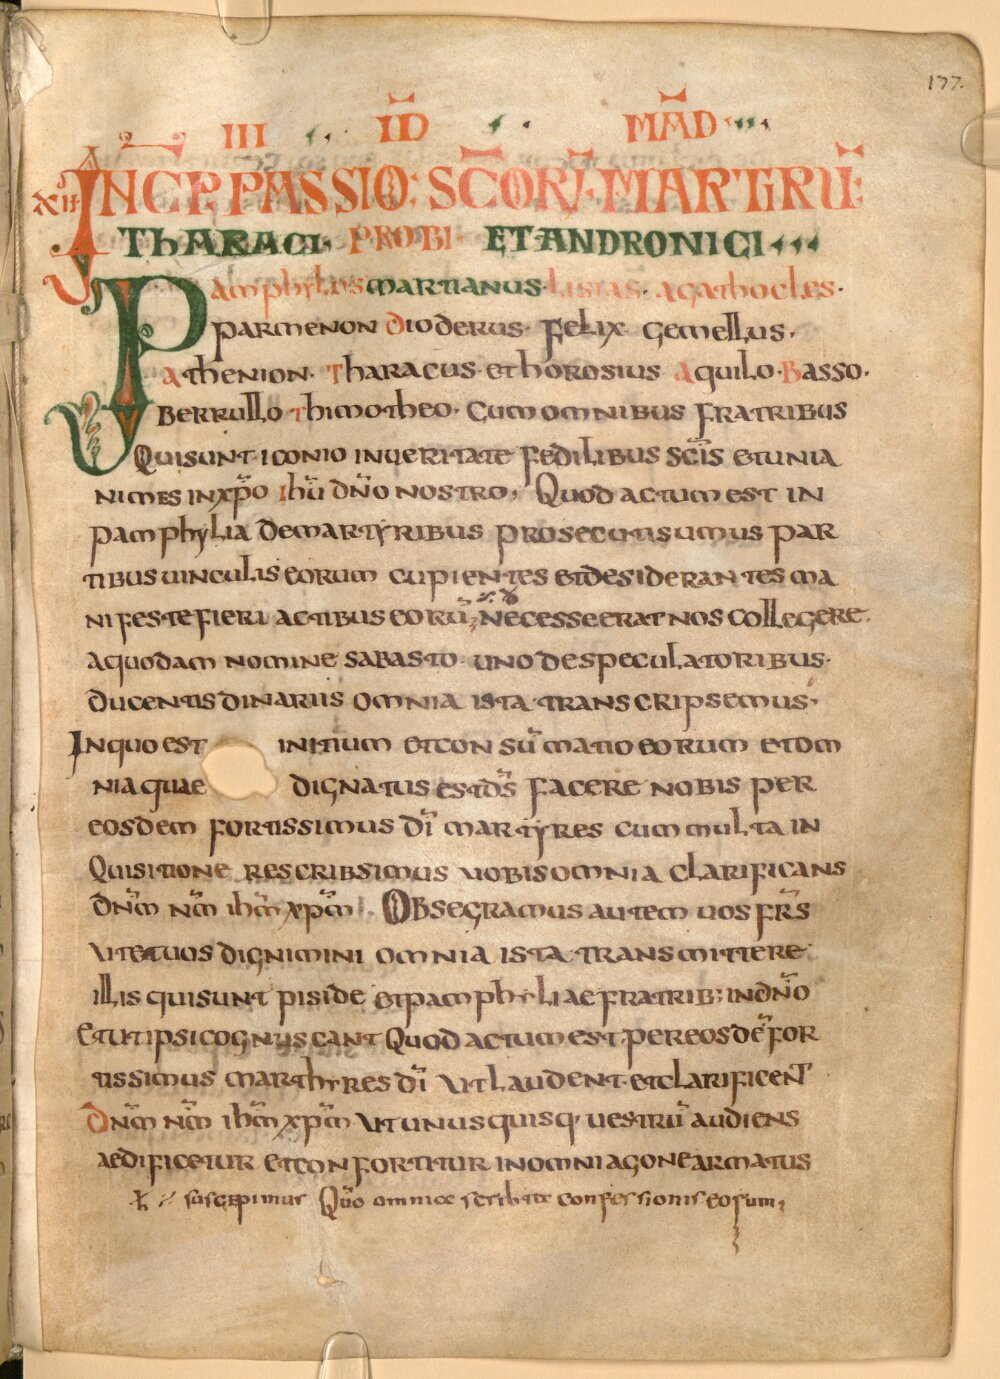 177.
III ID MAD
XII INCP PASSIO: SCORṼ MARTIRŪ:
THARACI· PROBI· ET ANDRONICI
Pamphylius martianus· lisias· agathocles·
parmenon dioderus· felix gemellus·
athenion· Tharacus· et horosius aquilo· Basso·
Berrullo· thimotheo· Cum omnibus fratribus
Qui sunt iconio in ueritate fedilibus scis et unia
nimes in xp̄o ihū dn̄o nostro, Quod actum est in
pamphylia de martyribus prosecuti sumus par
tibus uinculis eorum cupientes et desiderantes ma
nifeste fieri actibus eorū; Necesse erat nos collegere·
a quodam nomine sabasto· uno de speculatoribus·
Ducentis dinariis omnia ista· transcripsemus·
In quo est initium et consūmatio eorum et om
nia quae dignatus est ds̄ facere nobis per
eosdem fortissimus dī martyres cum multa in
quisitione rescribsimus uobis omnia clarificans
dn̄m nm̄ ihm̄ xpm̄· Obsegramus autem uos frs̄
Vt et uos dignimini omnia ista· transmittere
illis qui sunt piside et pamphyliae fratrib; in dn̄o
Et ut ipsi cognuscant Quod actum est· per eosdē for
tissimus marthyres dī Vt laudent· et clarificent
Dn̄m nm̄ ihm̄ xpm̄ Vt unusquisq· uestrū audiens
aedificetur et confortitur in omni agone armatus
suscepimus Qūo omnia scribta confessionis eorum;